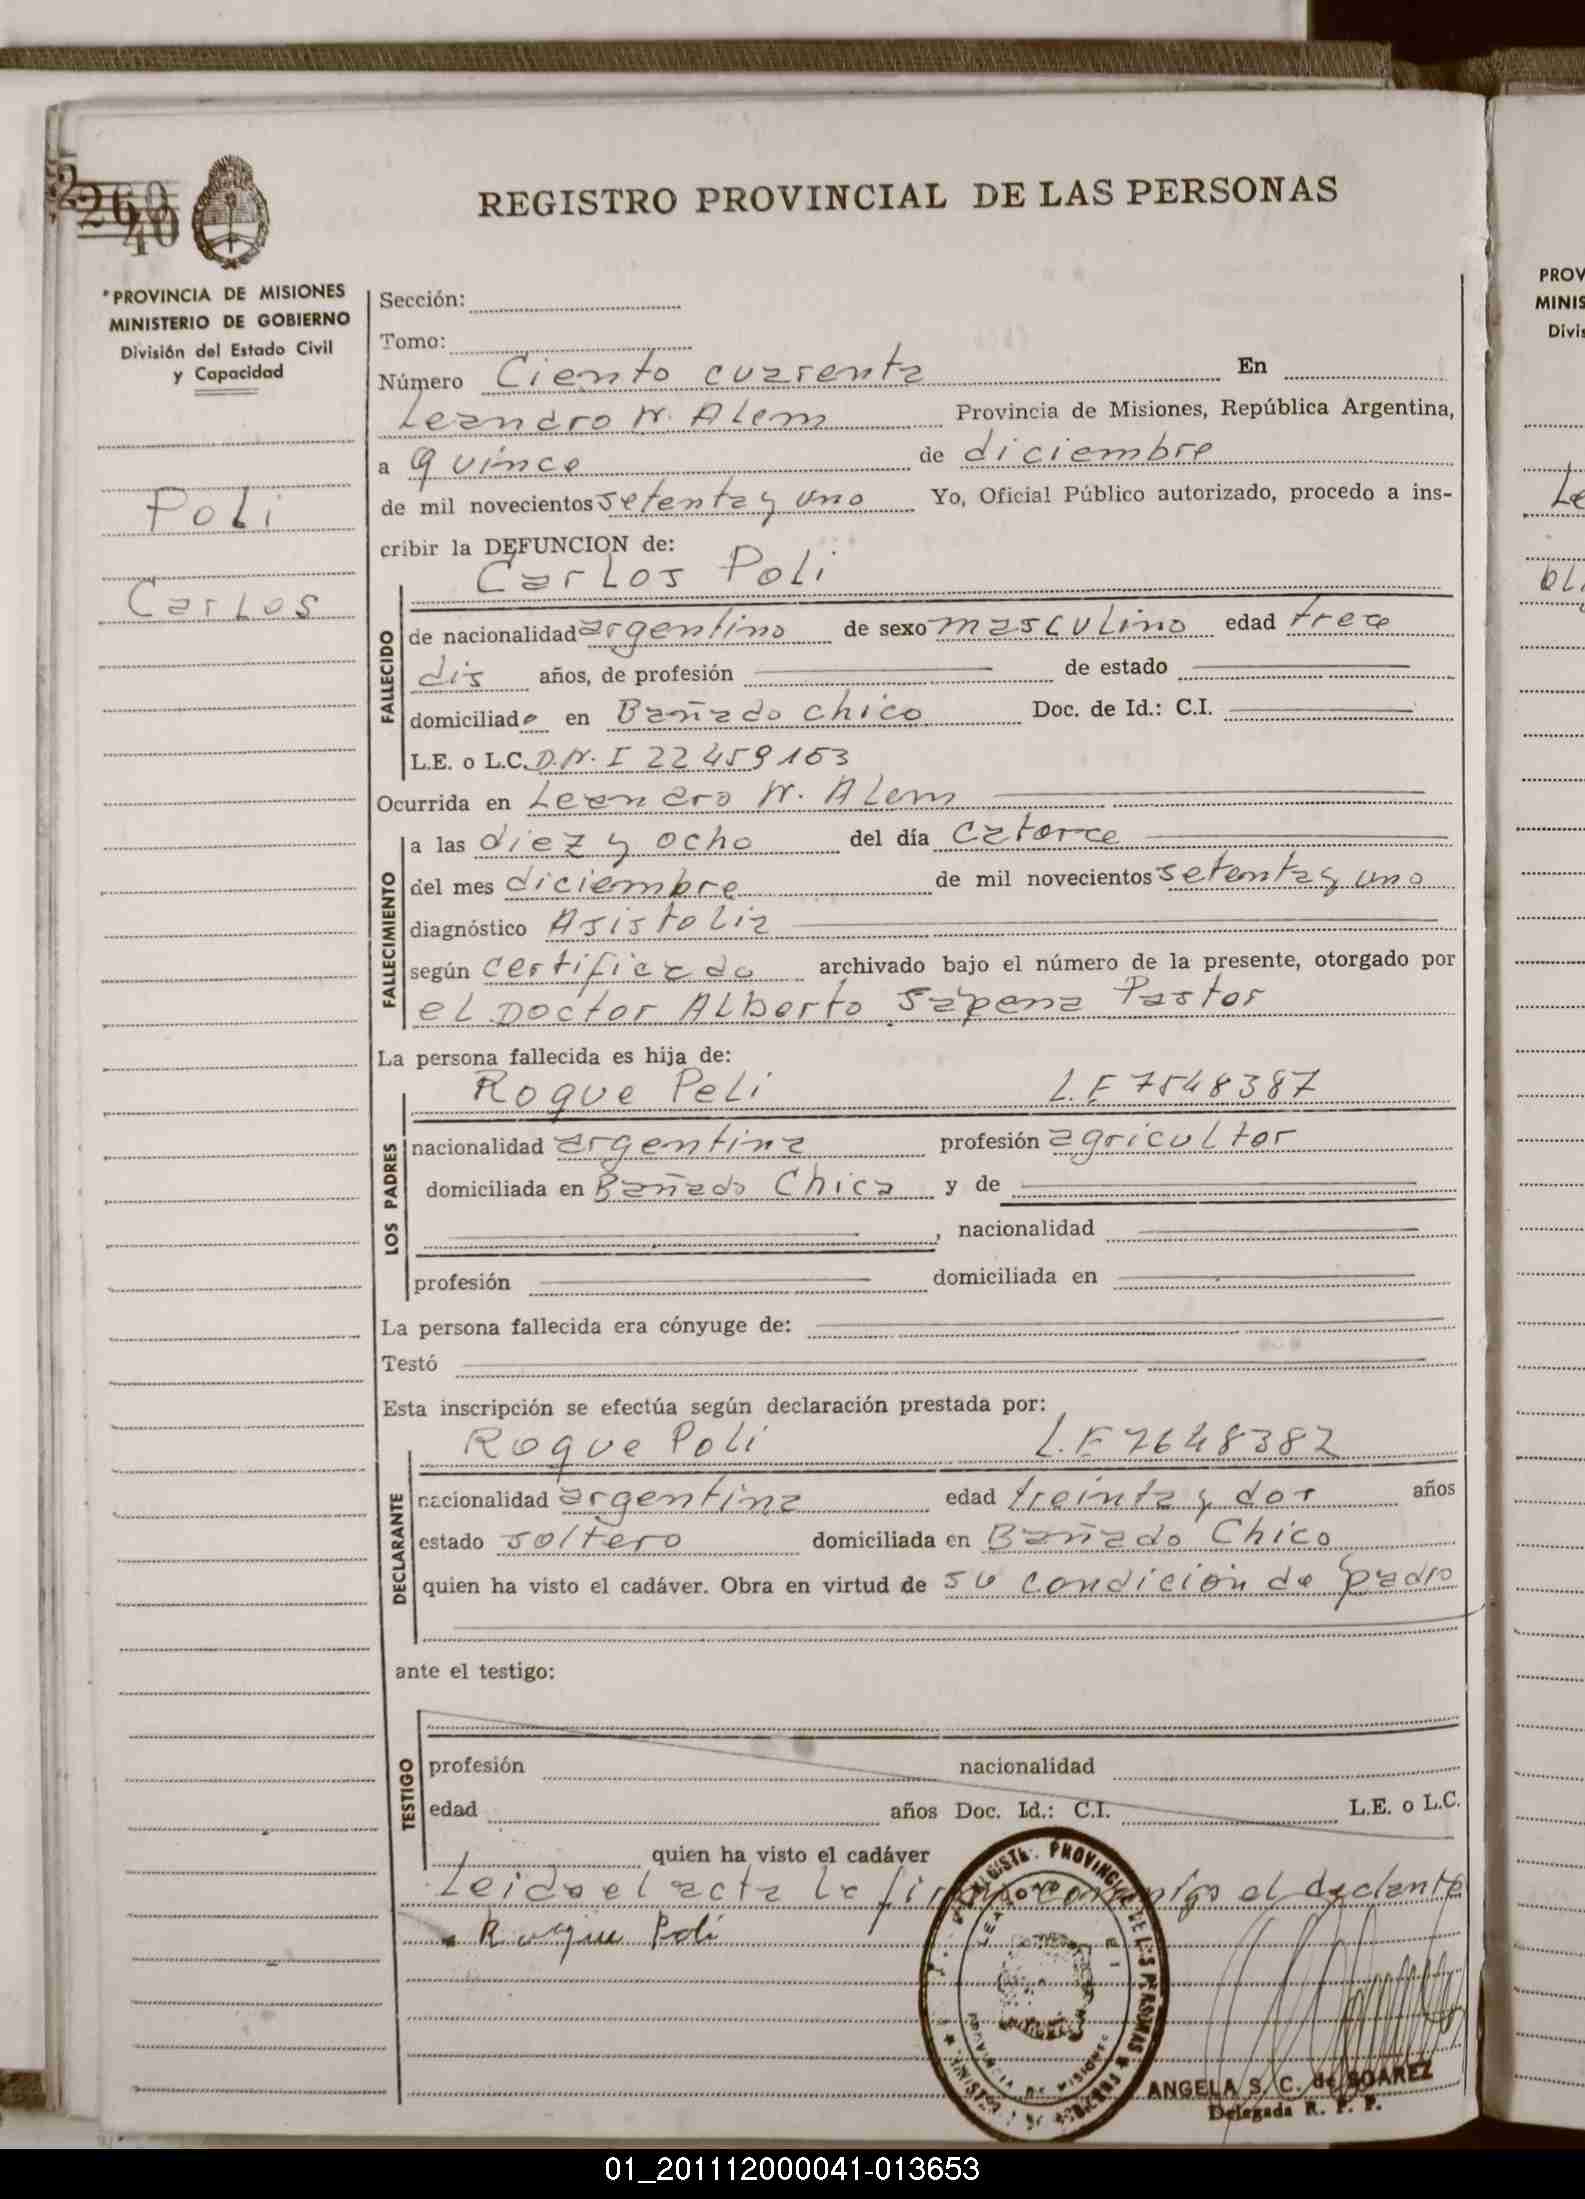 REGISTRO PROVINCIAL DE LAS PERSONAS
PROVINCIA DE MISIONES
MINISTERIO DE GOBIERNO
División del Estado Civil
y Capacidad
Poli
Carlos
Sección:
Tomo:
Número Ciento cuarenta En
Leandro N. Alem Provincia de Misiones, República Argentina,
a quince de diciembre
de mil novecientos setenta y uno Yo, Oficial Público autorizado, procedo a ins-
cribir la DEFUNCION de:
Carlos Poli
FALLECIDO
de nacionalidad argentino de sexo masculino edad trece
dis años, de profesión de estado
domiciliado en Bañado chico Doc. de Id.: C.I.
L.E. o L.C. D.N.I 22 459 163
Ocurrida en Leandro N. Alem
FALLECIMIENTO
a las diez y ocho del día catorce
del mes diciembre de mil novecientos setenta y uno
diagnóstico Asistolia
según certificado archivado bajo el número de la presente, otorgado por
el Doctor Alberto Sapena Pastor
La persona fallecida es hija de:
Roque Peli L.E 7548387
LOS PADRES
nacionalidad argentina profesión agricultor
domiciliada en Bañado Chica y de
, nacionalidad
profesión domiciliada en
La persona fallecida era cónyuge de:
Testó
Esta inscripción se efectúa según declaración prestada por:
Roque Poli L.E 7648382
DECLARANTE
nacionalidad argentina edad treinta y dos años
estado soltero domiciliada en Bañado Chico
quien ha visto el cadáver. Obra en virtud de su condición de padre
ante el testigo:
TESTIGO
profesión nacionalidad
edad años Doc. Id.: C.I. L.E. o L.C.
quien ha visto el cadáver
Leida el acta la firma conmigo el declante
Roque Poli
REGISTR. PROVINCIAL DE LAS PERSONAS
PROVINCIA DE MISIONES
ANGELA S. C. de SOAREZ
Delegada R. P. P.
PROV
MINIS
Divis
01_201112000041-013653